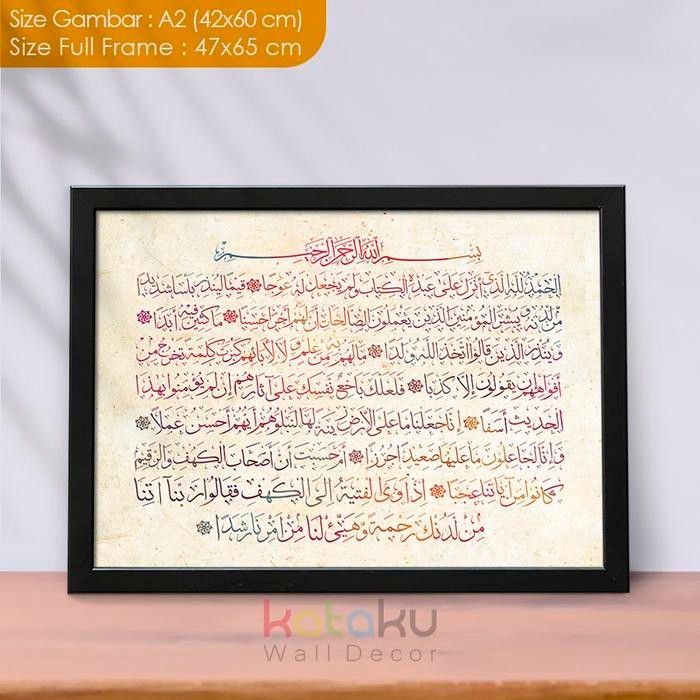 Size Gambar : A2 (42x60 cm)
Size Full Frame : 47x65 cm
بِسْمِ اللَّهِ الرَّحْمَٰنِ الرَّحِيمِ
الحَمْدُ لِلَّهِ الَّذِي أَنْزَلَ عَلَى عَبْدِهِ الكِتَابَ وَلَمْ يَجْعَلْ لَهُ عِوَجًا قَيِّمًا لِيُنْذِرَ بَأْسًا شَدِيدًا
مِنْ لَدُنْهُ وَيُبَشِّرَ المُؤْمِنِينَ الَّذِينَ يَعْمَلُونَ الصَّالِحَاتِ أَنَّ لَهُمْ أَجْرًا حَسَنًا مَاكِثِينَ فِيهِ أَبَدًا
وَيُنْذِرَ الَّذِينَ قَالُوا اتَّخَذَ اللَّهُ وَلَدًا مَا لَهُمْ بِهِ مِنْ عِلْمٍ وَلَا لِآبَائِهِمْ كَبُرَتْ كَلِمَةً تَخْرُجُ مِنْ
أَفْوَاهِهِمْ إِنْ يَقُولُونَ إِلَّا كَذِبًا فَلَعَلَّكَ بَاخِعٌ نَفْسَكَ عَلَى آثَارِهِمْ إِنْ لَمْ يُؤْمِنُوا بِهَذَا
الحَدِيثِ أَسَفًا إِنَّا جَعَلْنَا مَا عَلَى الأَرْضِ زِينَةً لَهَا لِنَبْلُوَهُمْ أَيُّهُمْ أَحْسَنُ عَمَلًا
وَإِنَّا لَجَاعِلُونَ مَا عَلَيْهَا صَعِيدًا جُرُزًا أَمْ حَسِبْتَ أَنَّ أَصْحَابَ الكَهْفِ وَالرَّقِيمِ
كَانُوا مِنْ آيَاتِنَا عَجَبًا إِذْ أَوَى الفِتْيَةُ إِلَى الكَهْفِ فَقَالُوا رَبَّنَا آتِنَا
مِنْ لَدُنْكَ رَحْمَةً وَهَيِّئْ لَنَا مِنْ أَمْرِنَا رَشَدًا
kataku
Wall Decor